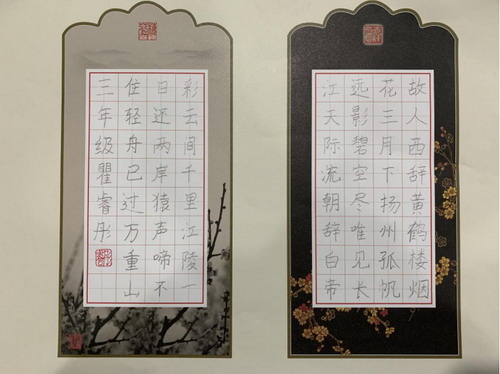 故人西辞黄鹤楼烟
花三月下扬州孤帆
远影碧空尽唯见长
江天际流朝辞白帝
彩云间千里江陵一
日还两岸猿声啼不
住轻舟已过万重山
三年级瞿睿彤